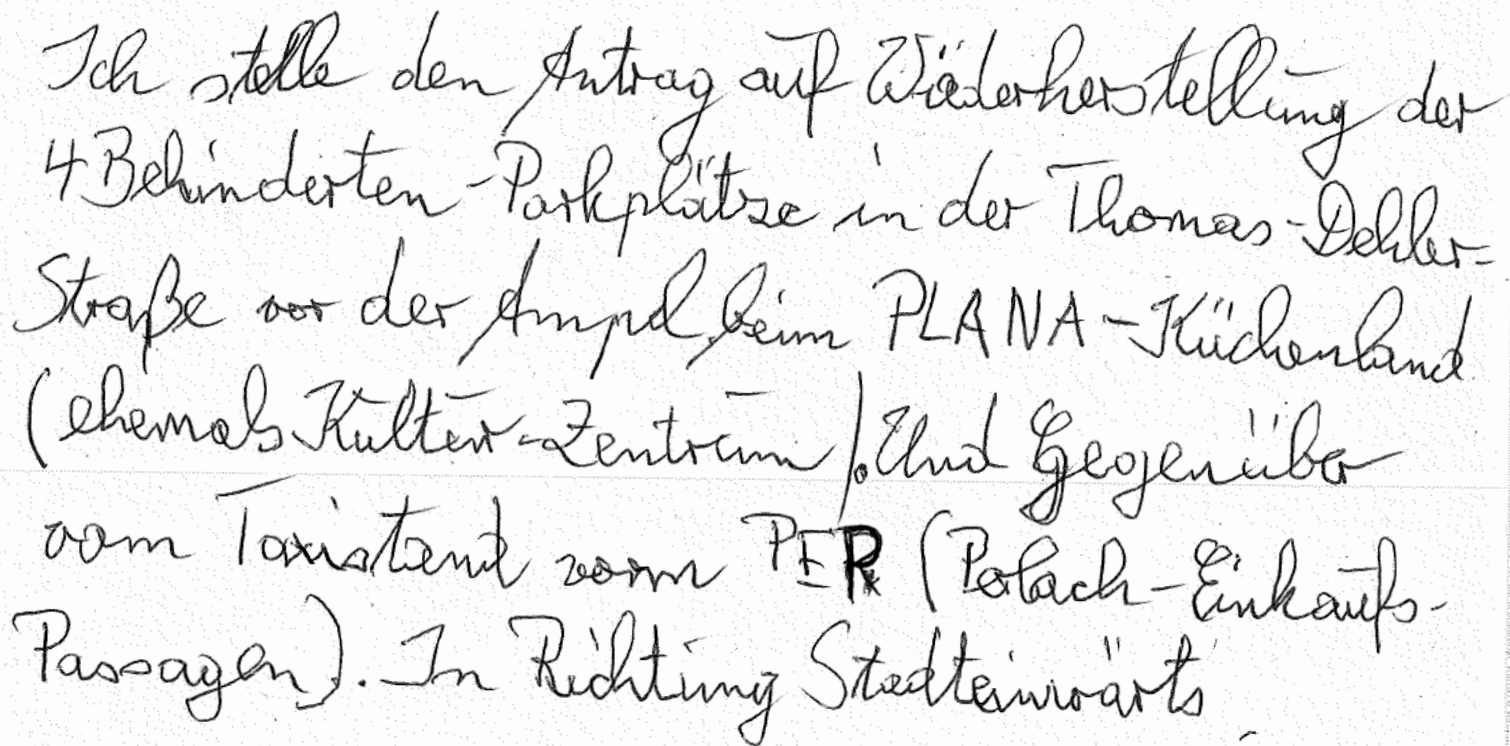 Ich stelle den Antrag auf Wiederherstellung der
4 Behinderten-Parkplätze in der Thomas-Dehler-
Straße vor der Ampel beim PLANA-Küchenland
(ehemals Kultur-Zentrum). Und Gegenüber
vom Taxistand vorm PER (Perlach-Einkaufs-
Passagen). In Richtung Stadteinwärts